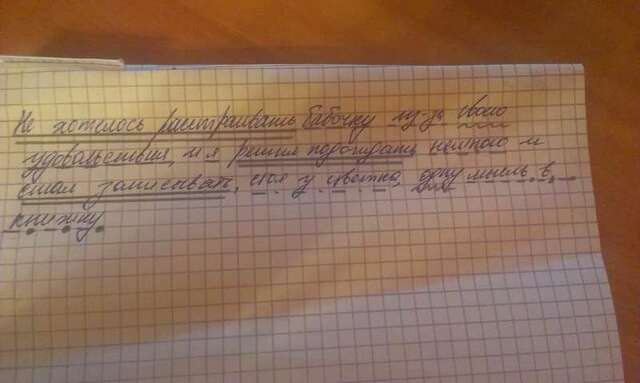 Не хотелось расстраивать бабочку из-за своего
удовольствия, и я решил подождать немного и
стал записывать, стоя у цветка, одну мысль в
книжку.